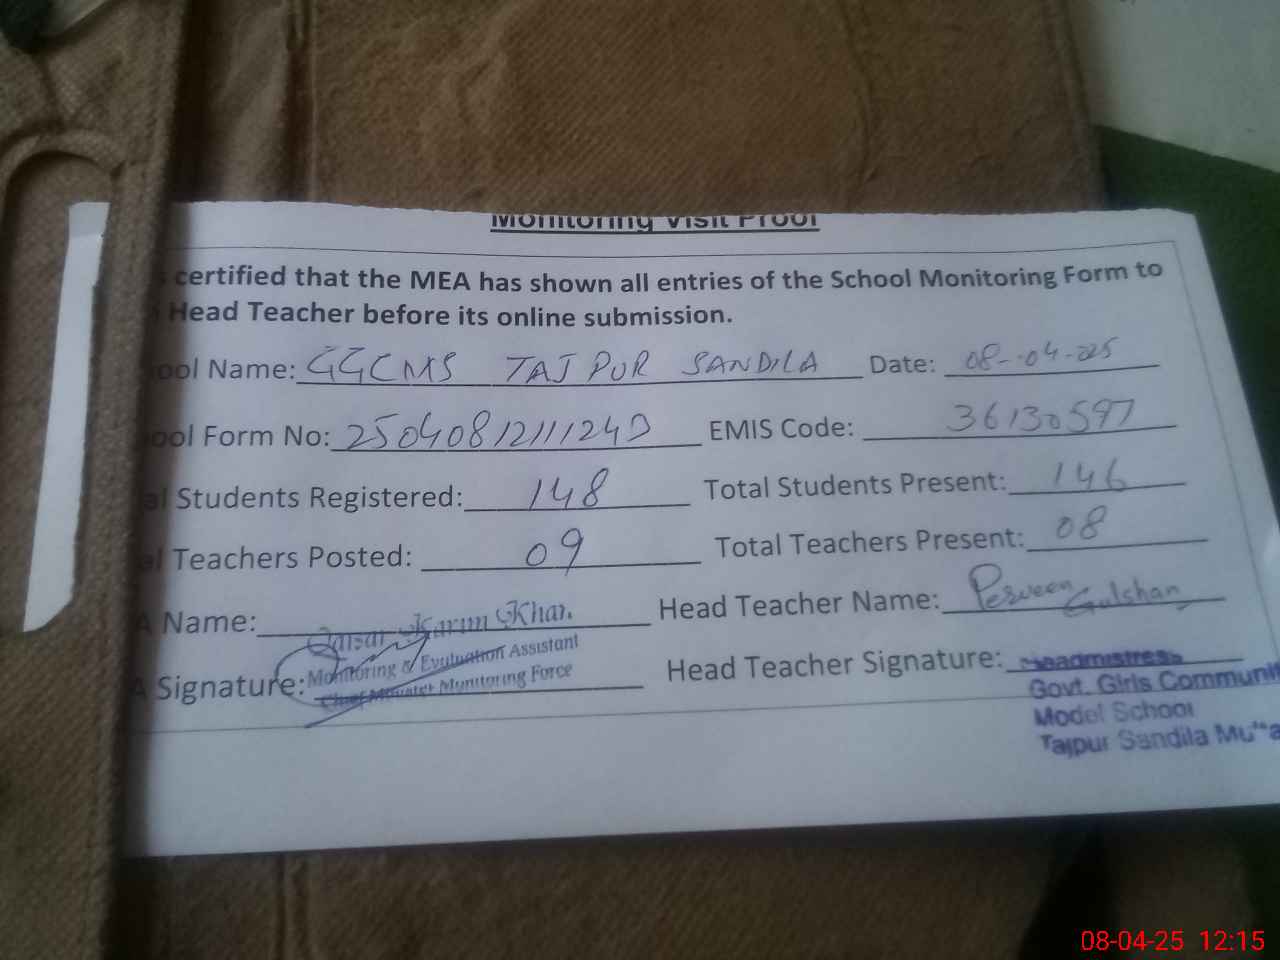 Monitoring Visit Proof
certified that the MEA has shown all entries of the School Monitoring Form to
Head Teacher before its online submission.
ool Name: GGCMS TAJPUR SANDILA Date: 08-04-025
ool Form No: EMIS Code: 36130597
al Students Registered: 148 Total Students Present: 146
al Teachers Posted: 09 Total Teachers Present: 08
A Name: Qaisar Karim Khan Head Teacher Name: Perveen Gulshan
Monitoring & Evaluation Assistant
A Signature: Chief Minister Monitoring Force Head Teacher Signature: Headmistress
Govt. Girls Communit
Model School
Tajpur Sandila
08-04-25 12:15